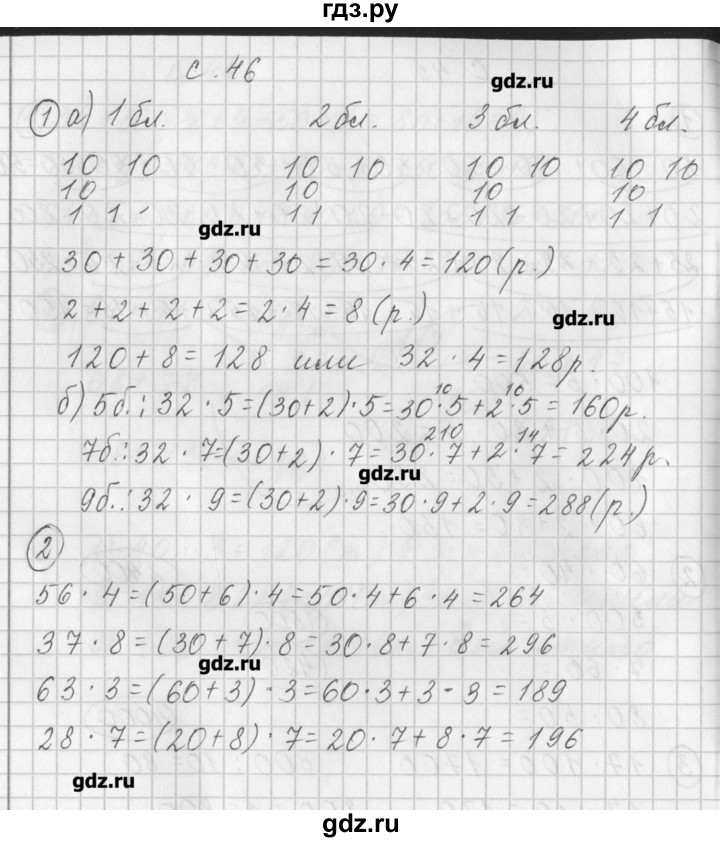 гдз.ру
с. 46
gdz.ru
① а) 1 бл. 2 бл. 3 бл. 4 бл.
10 10 10 10 10 10 10 10
10 10 10 10
1 1 1 1 1 1 1 1
gdz.ru
30 + 30 + 30 + 30 = 30 · 4 = 120 (р.)
2 + 2 + 2 + 2 = 2 · 4 = 8 (р.)
gdz.ru
120 + 8 = 128 или 32 · 4 = 128р.
10 10
б) 5б.: 32 · 5 = (30+2) · 5 = 30 · 5 + 2 · 5 = 160р.
210 14
7б.: 32 · 7 = (30+2) · 7 = 30 · 7 + 2 · 7 = 224р.
gdz.ru
9б.: 32 · 9 = (30+2) · 9 = 30 · 9 + 2 · 9 = 288 (р.)
②
56 · 4 = (50+6) · 4 = 50 · 4 + 6 · 4 = 264
37 · 8 = (30+7) · 8 = 30 · 8 + 7 · 8 = 296
gdz.ru
63 · 3 = (60+3) · 3 = 60 · 3 + 3 · 3 = 189
28 · 7 = (20+8) · 7 = 20 · 7 + 8 · 7 = 196
gdz.ru
gdz.ru